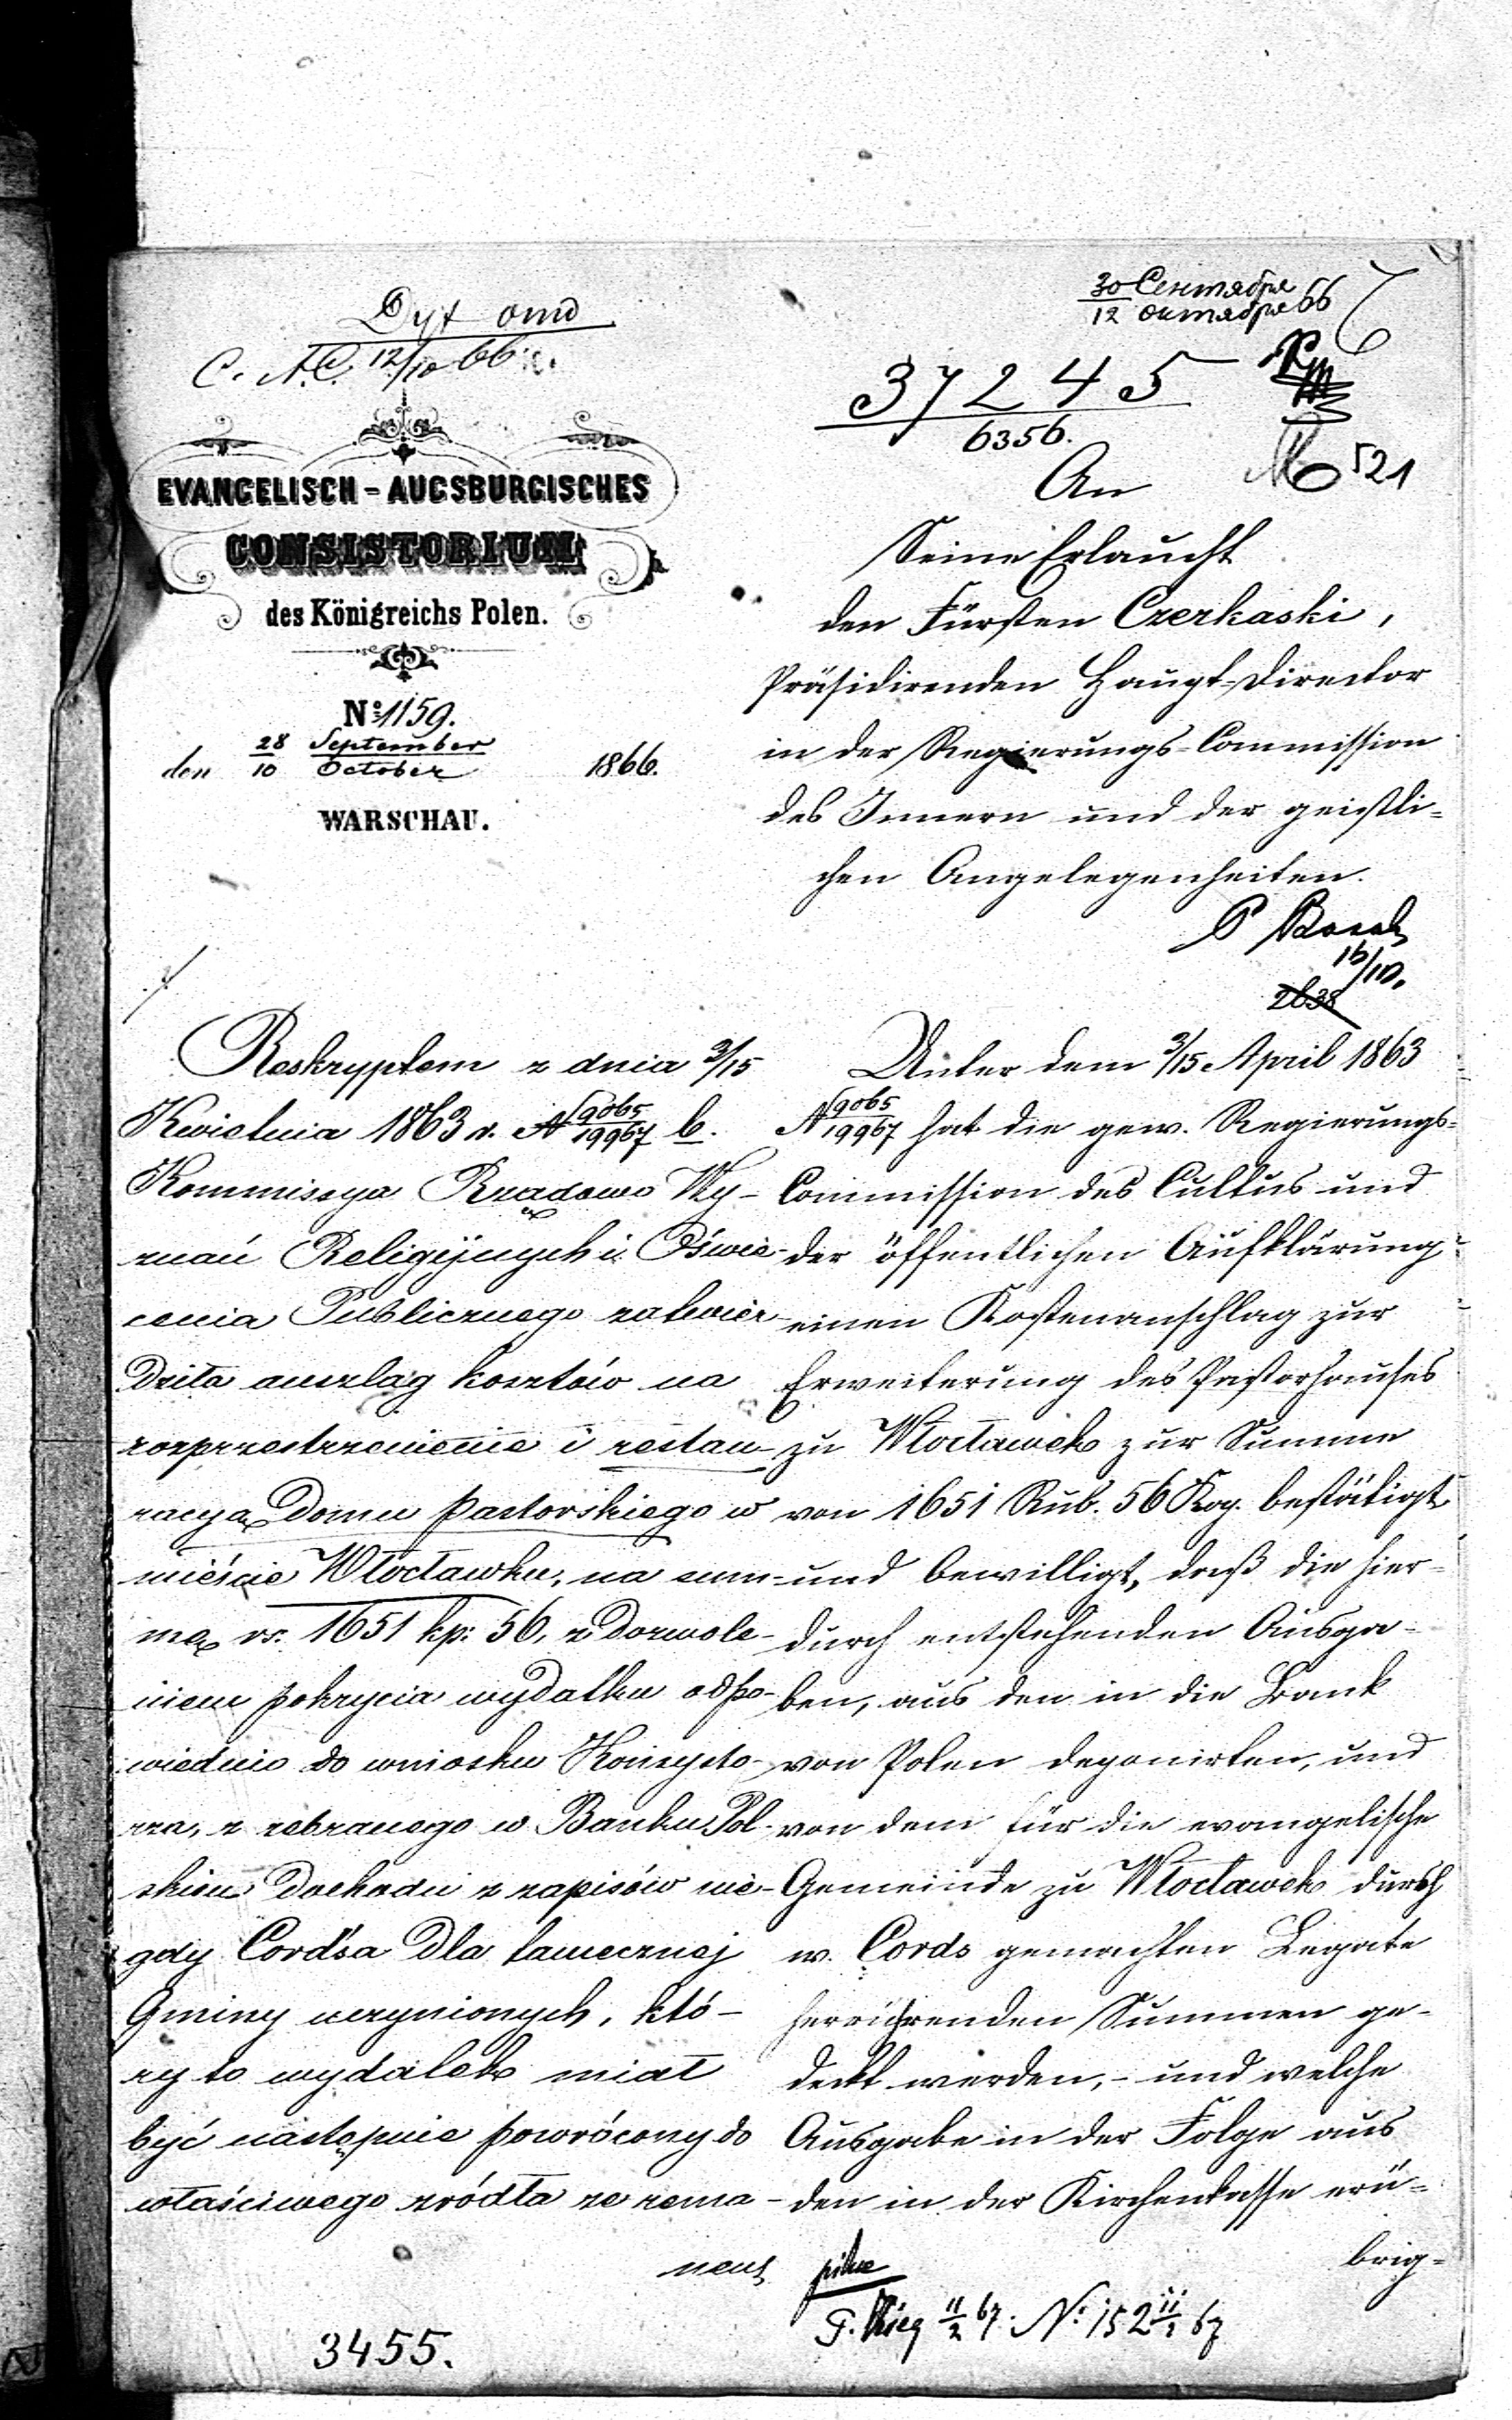 30 Сентября
12 октября 66
Dyt omd
C. A.C. 12/10 66.
37245
6356.
521
EVANGELISCH-AUGSBURGISCHES
CONSISTORIUM
des Königreichs Polen.
№ 1159.
den 28 September / 10 October 1866.
WARSCHAU.
An
Seine Erlaucht
den Fürsten Czerkaski,
Präsidirenden Haupt-Director
in der Regierungs-Commission
des Innern und der geistli-
chen Angelegenheiten.
16/10.
2638
Reskryptem z dnia 3/15
Kwietnia 1863 r. № 9065/19967 b.
Kommissya Rządowa Wy-
znań Religijnych i Oświe-
cenia Publicznego zatwier-
dziła anszlag kosztów na
rozprzestrzenienie i restau-
racyą Domu pastorskiego w
mieście Włocławku, na sum-
mę rs. 1651 kp: 56, z dozwole-
niem pokrycia wydatku odpo-
wiednio do wniosku Konsysto-
rza, z zebranego w Banku Pol-
skim dochodu z zapisów nie-
gdy Cords'a dla tamecznej
Gminy uczynionych, któ-
ry to wydatek miał
być następnie powrócony do
właściwego źródła ze rema-
nent
Unter dem 3/15 April 1863
№ 9065/19967 hat die gew. Regierungs-
Commission des Cultus und
der öffentlichen Aufklärung
einen Kostenanschlag zur
Erweiterung des Pastorhauses
zu Włocławek zur Summe
von 1651 Rub. 56 Kop. bestätigt
und bewilligt, daß die hier-
durch entstehenden Ausga-
ben, aus den in die Bank
von Polen deponirten, und
von dem für die evangelische
Gemeinde zu Włocławek durch
w. Cords gemachten Legate
herrührenden Summen ge-
deckt werden, - und welche
Ausgabe in der Folge aus
den in der Kirchenkasse erü-
brig-
pilne
11/2 67. № 152 11/2 67
3455.